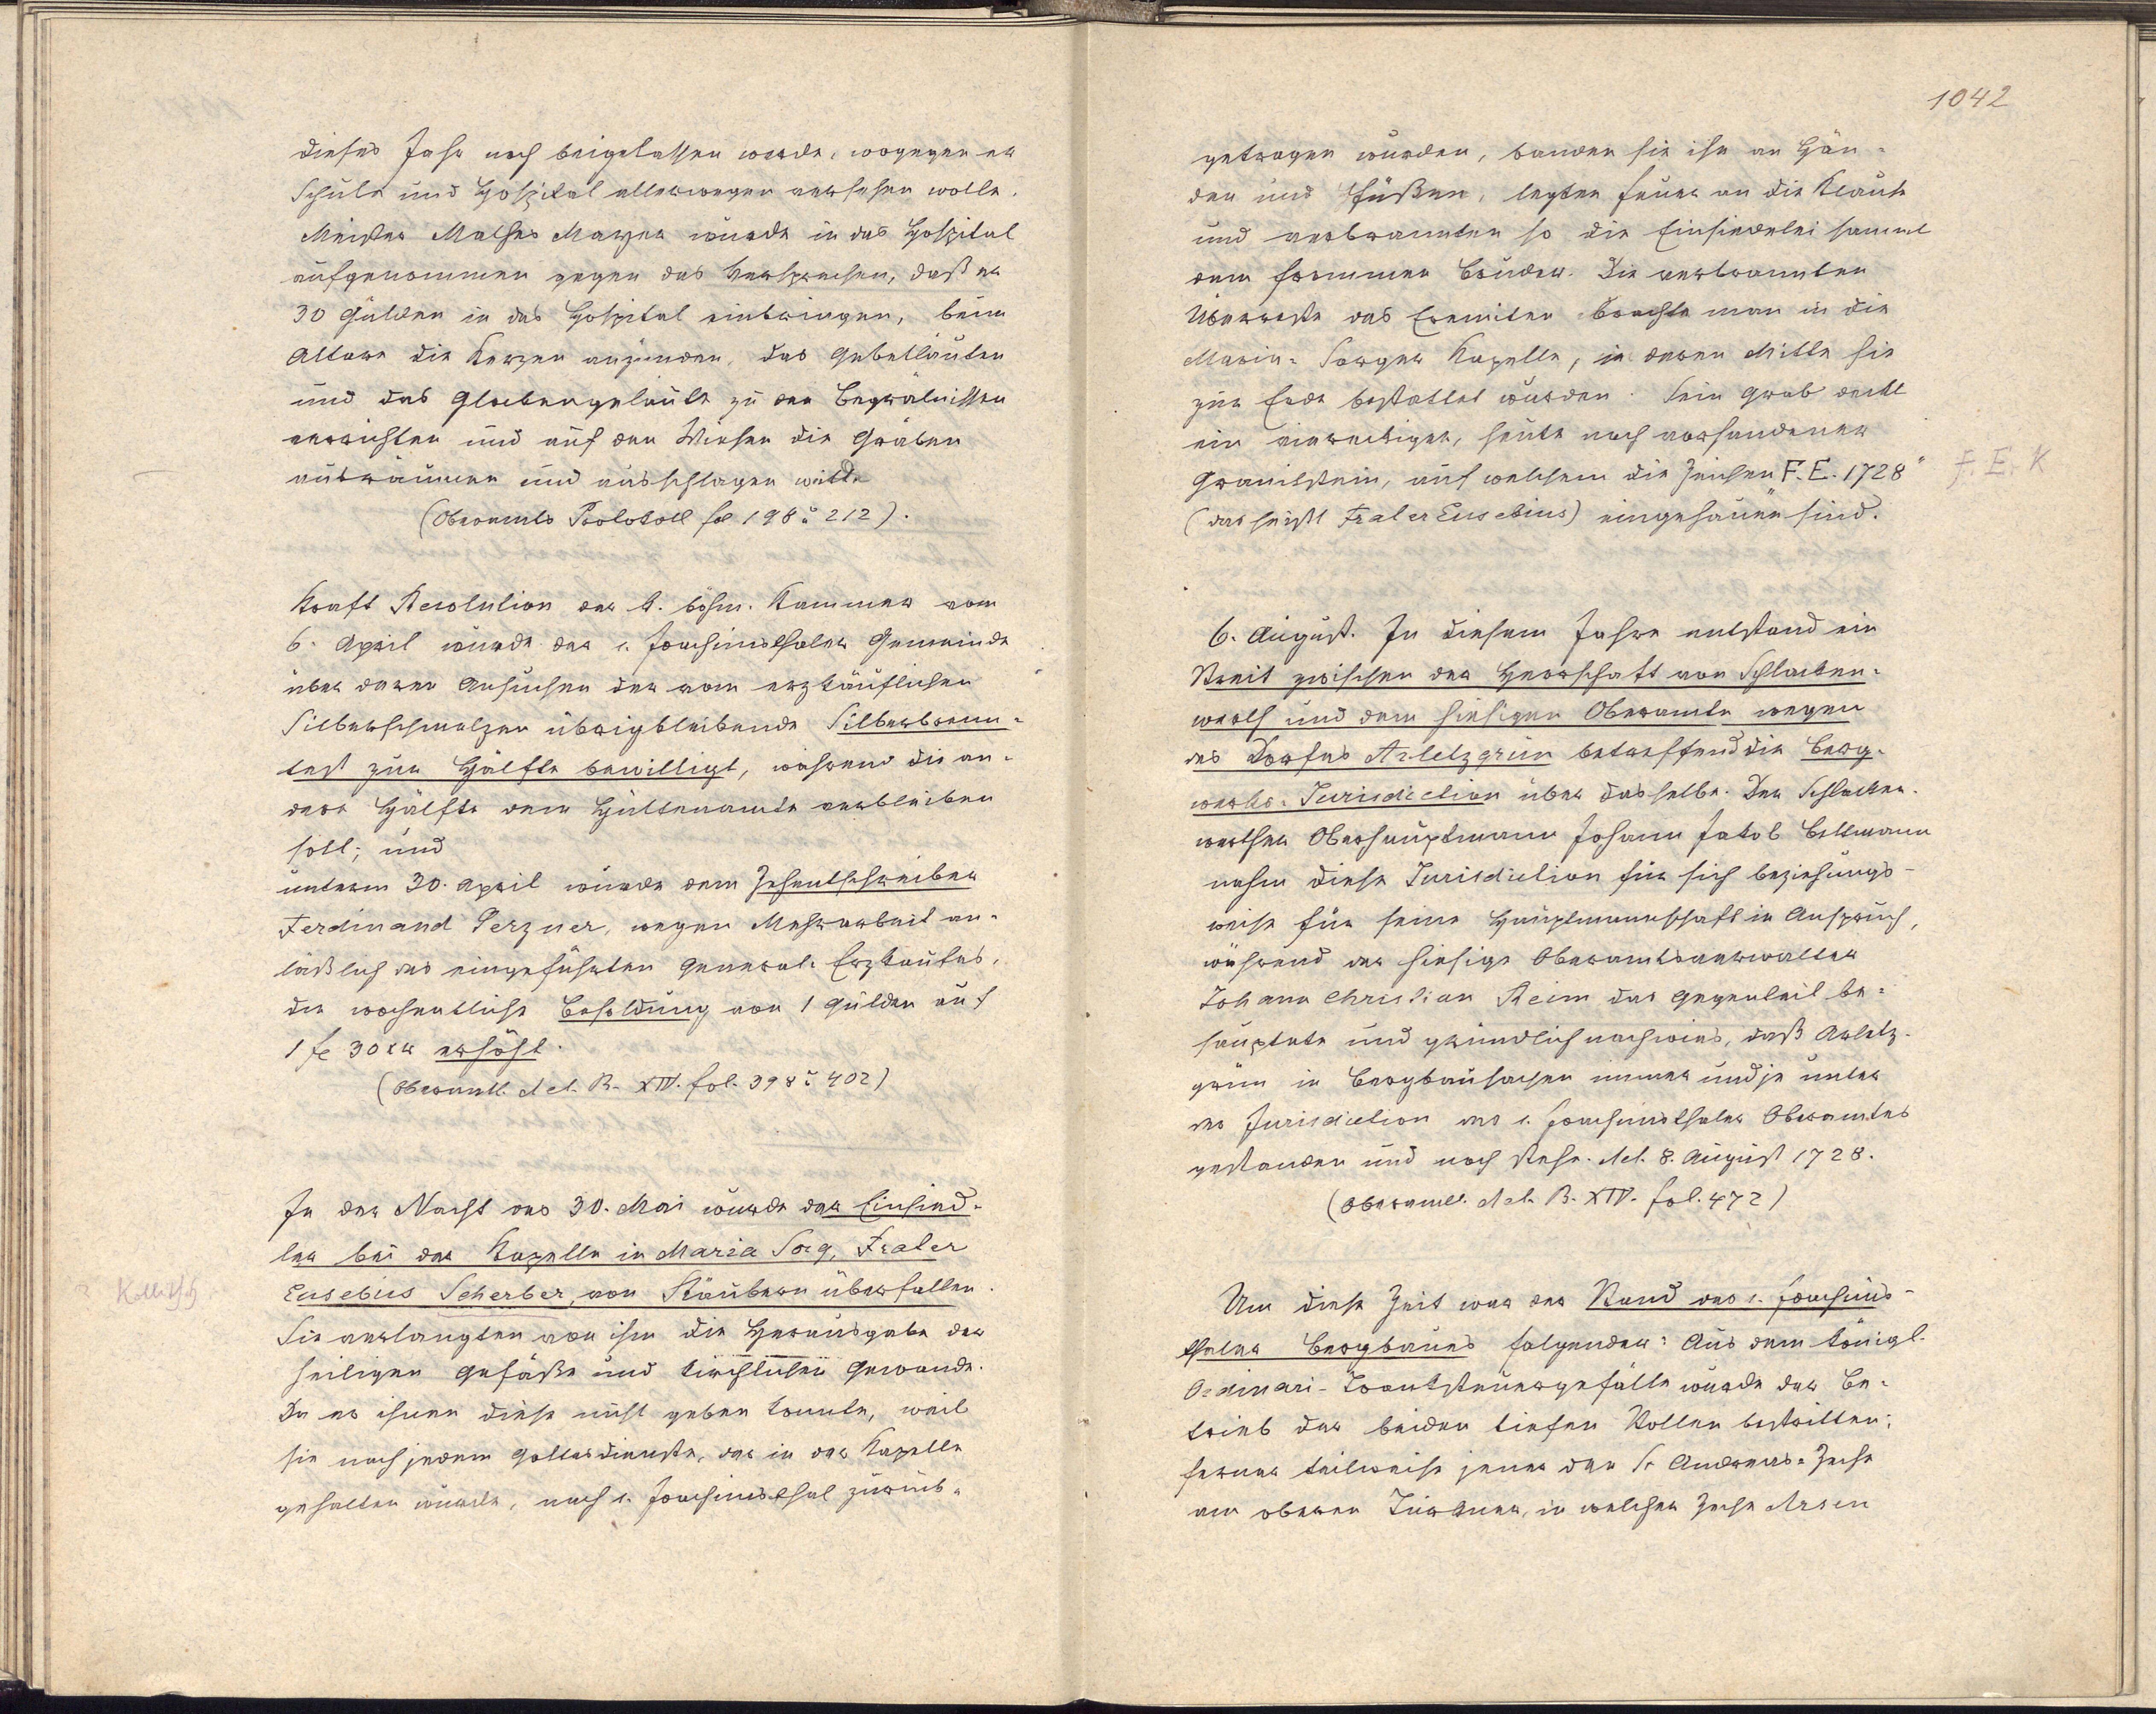 dieses Jahr noch beigelassen werde, wogegen er
Schule und Hospital allerwegen versehen wolle.
Meister Mathes Mayer wurde in das Hospital
aufgenommen gegen das Versprechen, daß er
30 Gulden in das Hospital einbringen, beim
Altare die Kerzen anzünden, das Gebetläuten
und das Glockengeläute zu den Begräbnissen
verrichten und auf den Wiesen die Gräben
ausräumen und ausschlagen wolle
(Oberamts Protokoll fol 198 u 212).
Kraft Resolution der k. böhm. Kammer vom
6. April wurde der s. Joachimsthaler Gemeinde
über deren Ansuchen der vom erzkäuflichen
Silberschmelzen übrigbleibende Silberbrenn-
test zur Hälfte bewilligt, während die an-
dere Hälfte dem Hüttenamte verbleiben
soll; und
unterm 30. April wurde dem Zehentschreiber
Ferdinand Perzner, wegen Mehrarbeit an-
läßlich des eingeführten General-Erzkaufes,
die wochentliche Besoldung von 1 Gulden auf
1 fl 30 xr erhöht.
(Oberamtl. Act. B. XIV. fol. 398 u 402)
In der Nacht des 30. Mai wurde der Einsied-
ler bei der Kapelle in Maria Sorg, Frater
Eusebius Scherber, von Räubern überfallen.
Sie verlangten von ihm die Herausgabe der
heiligen Gefäße und kirchlichen Gewande.
Da er ihnen diese nicht geben konnte, weil
sie nach jedem Gottesdienste, der in der Kapelle
gehalten wurde, nach s. Joachimsthal zurück-
1042
getragen wurden, banden sie ihn an Hän-
den und Füßen, legten Feuer an die Klause
und verbrannten so die Einsiedelei sammt
dem frommen Bruder. Die verbrannten
Überreste des Eremiten brachte man in die
Maria-Sorger Kapelle, in deren Mitte sie
zur Erde bestattet wurden. Sein Grab deckt
ein viereckiger, heute noch vorhandener
Granitstein, auf welchem die Zeichen F. E. 1728"
F. E. K
(das heißt Frater Eusebius) eingehauen sind.
6. August. In diesem Jahre entstand ein
Streit zwischen der Herrschaft von Schlacken-
werth und dem hiesigen Oberamte wegen
des Dorfes Arletzgrün betreffend die Berg-
werks-Jurisdiction über dasselbe. Der Schlacken-
werther Oberhauptmann Johann Jakob Bellmann
nahm diese Jurisdiction für sich beziehungs-
weise für seine Hauptmannschaft in Anspruch,
während der hiesige Oberamtsverwalter
Johann Christian Reim das Gegenteil be-
hauptete und gründlich nachwies, daß Arletz-
grün in Bergbausachen immer und je unter
der Jurisdiction des s. Joachimsthaler Oberamtes
gestanden und noch stehe. Act. 8. August 1728.
(Oberamtl. Act. B. XIV. fol. 472)
Um diese Zeit war der Stand des s. Joachims-
thaler Bergbaues folgender: Aus dem königl.
Ordinari-Tranksteuergefälle wurde der Be-
trieb der beiden tiefen Stollen bestritten;
ferner teilweise jener der St Andreas-Zeche
am oberen Türkner, in welcher Zeche Arsen